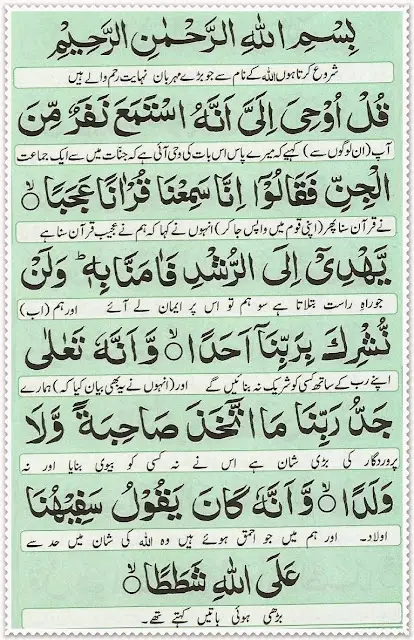 بِسْمِ اللهِ الرَّحْمٰنِ الرَّحِيْمِ
شروع کرتا ہوں اللہ کے نام سے جو بڑے مہربان نہایت رحم والے ہیں
قُلْ اُوْحِیَ اِلَیَّ اَنَّهُ اسْتَمَعَ نَفَرٌ مِّنَ
آپ (ان لوگوں سے) کہیے کہ میرے پاس اس بات کی وحی آئی ہے کہ جنات میں سے ایک جماعت
الْجِنِّ فَقَالُوْۤا اِنَّا سَمِعْنَا قُرْاٰنًا عَجَبًا ۙ
نے قرآن سنا پھر (اپنی قوم میں واپس جا کر) انہوں نے کہا کہ ہم نے عجیب قرآن سنا ہے
یَّهْدِیْۤ اِلَی الرُّشْدِ فَاٰمَنَّا بِهٖ ؕ وَلَنْ
جو راہ راست بتلاتا ہے سو ہم تو اس پر ایمان لے آئے اور ہم (اب)
نُّشْرِكَ بِرَبِّنَاۤ اَحَدًا ۙ وَّاَنَّهٗ تَعٰلٰی
اپنے رب کے ساتھ کسی کو شریک نہ بنائیں گے اور (انہوں نے یہ بھی بیان کیا کہ) ہمارے
جَدُّ رَبِّنَا مَا اتَّخَذَ صَاحِبَةً وَّلَا
پروردگار کی بڑی شان ہے اس نے نہ کسی کو بیوی بنایا اور نہ
وَلَدًا ۙ وَّاَنَّهٗ كَانَ یَقُوْلُ سَفِیْهُنَا
اولاد۔ اور ہم میں جو احمق ہوئے ہیں وہ اللہ کی شان میں حد سے
عَلَی اللهِ شَطَطًا ۙ
بڑھی ہوئی باتیں کہتے تھے۔